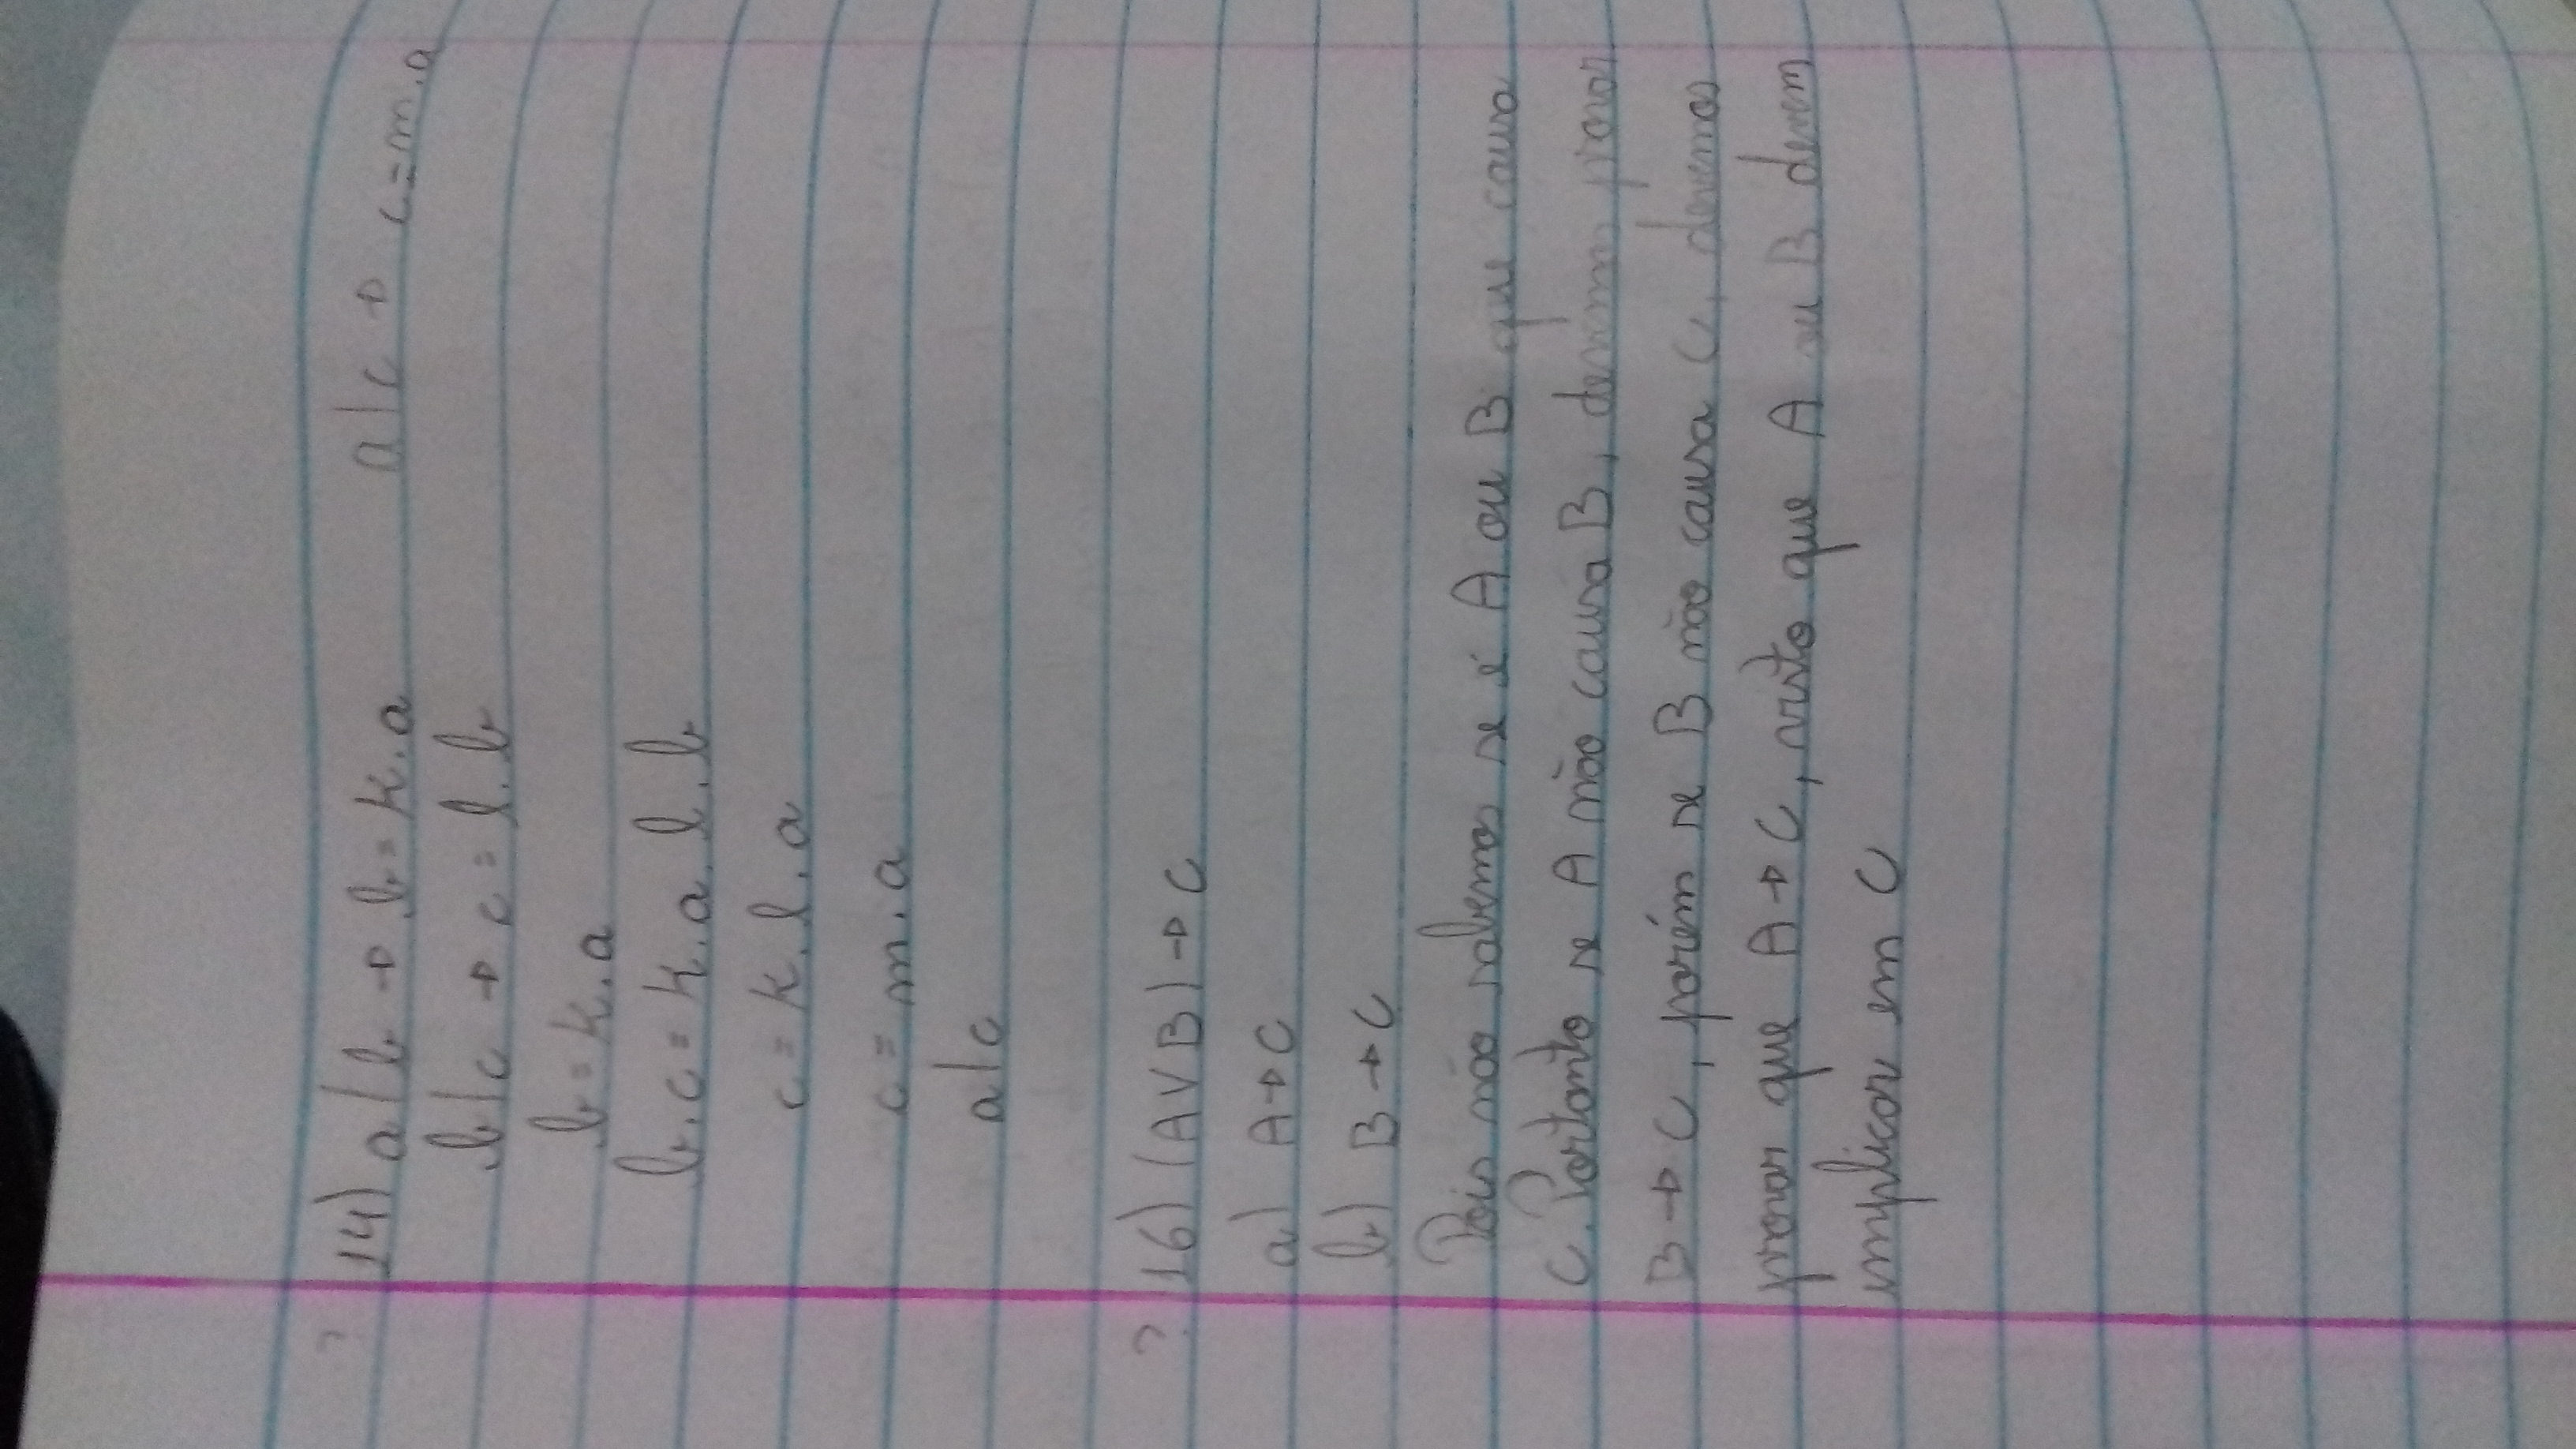 ? 14) a|b → b = k.a a|c → c = m.a
b|c → c = l.b
b = k.a
b.c = k.a.l.b
c = k.l.a
c = m.a
a|c
? 16) (A∨B) → C
a) A → C
b) B → C
Pois não sabemos se é A ou B que causa
C. Portanto se A não causa B, devemos provar
B → C, porém se B não causa C, devemos
provar que A → C, visto que A ou B devem
implicar em C